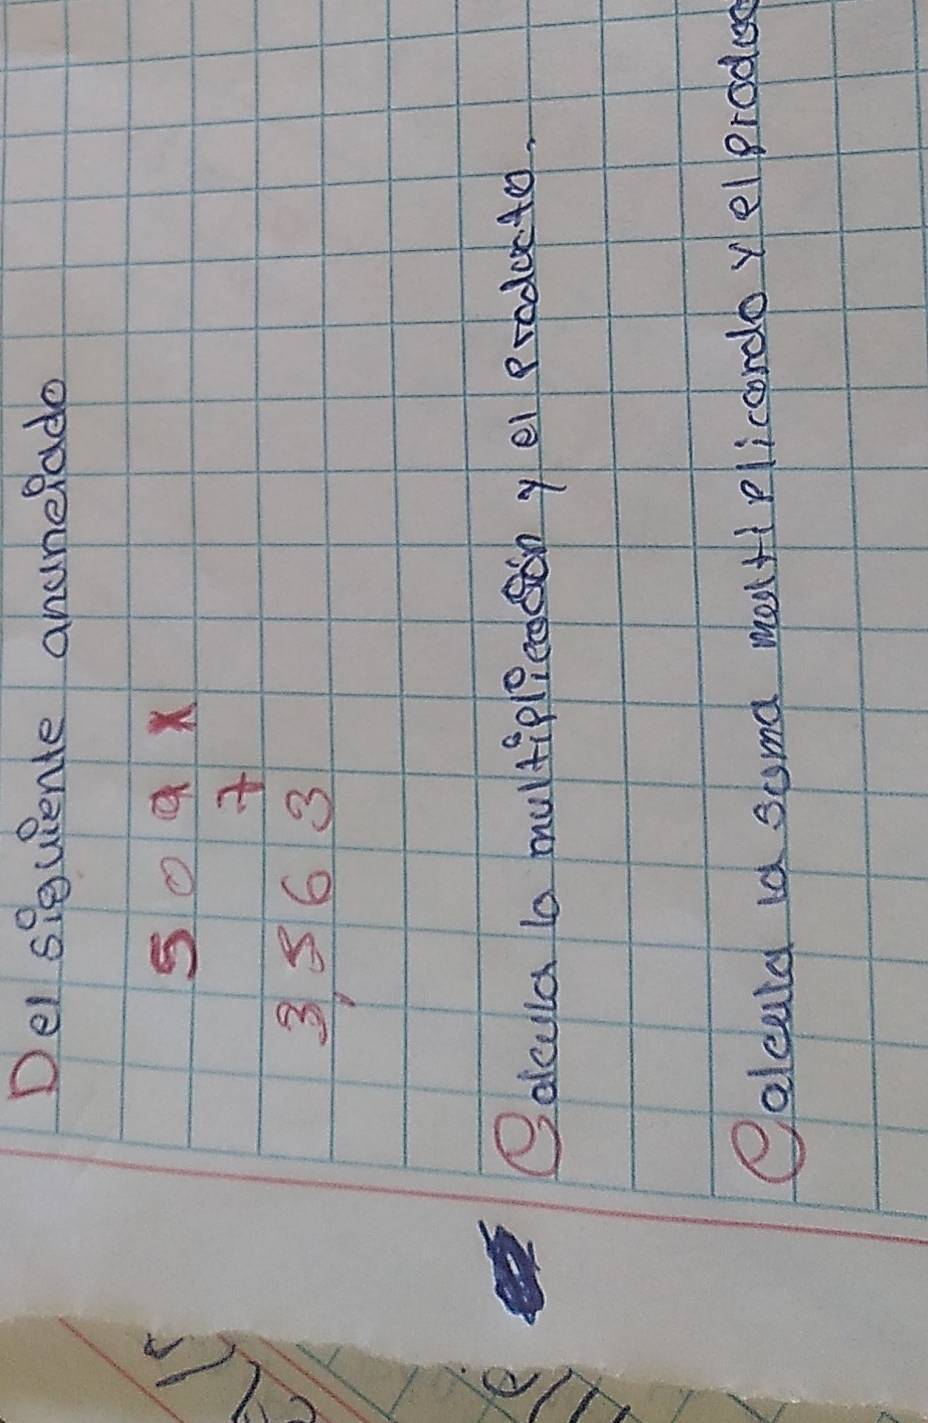 Del siguiente anunciado
509 x
7
3,563
Calcula la multiplicación y el producto.
Calcula la suma multiplicando y el produc